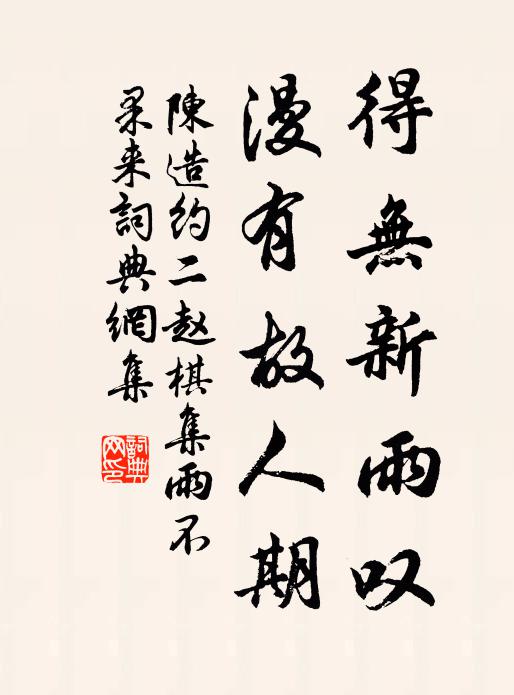 得無新雨叹
漫有故人期
陳造約二赵棋集雨不
果来詞典網集
詞典网印